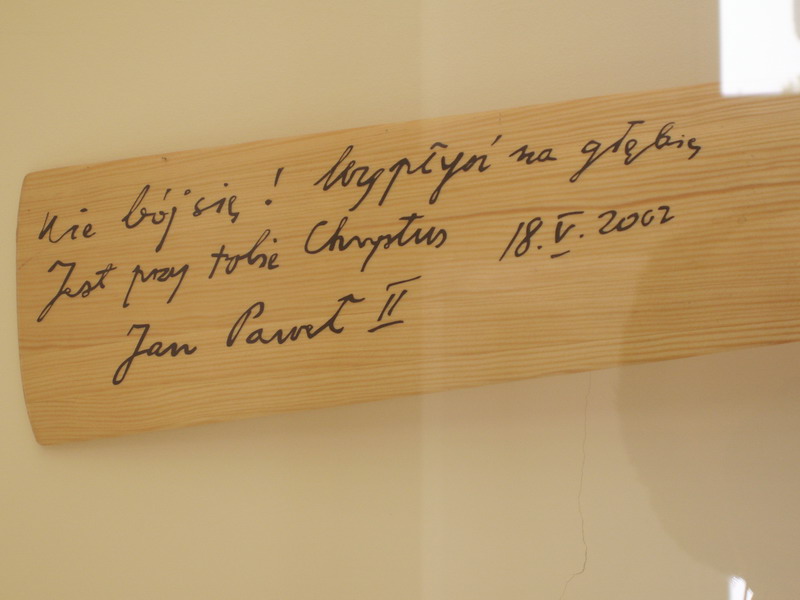 Nie bój się! Wypłyń na głębię
Jest przy tobie Chrystus 18.V.2002
Jan Paweł II